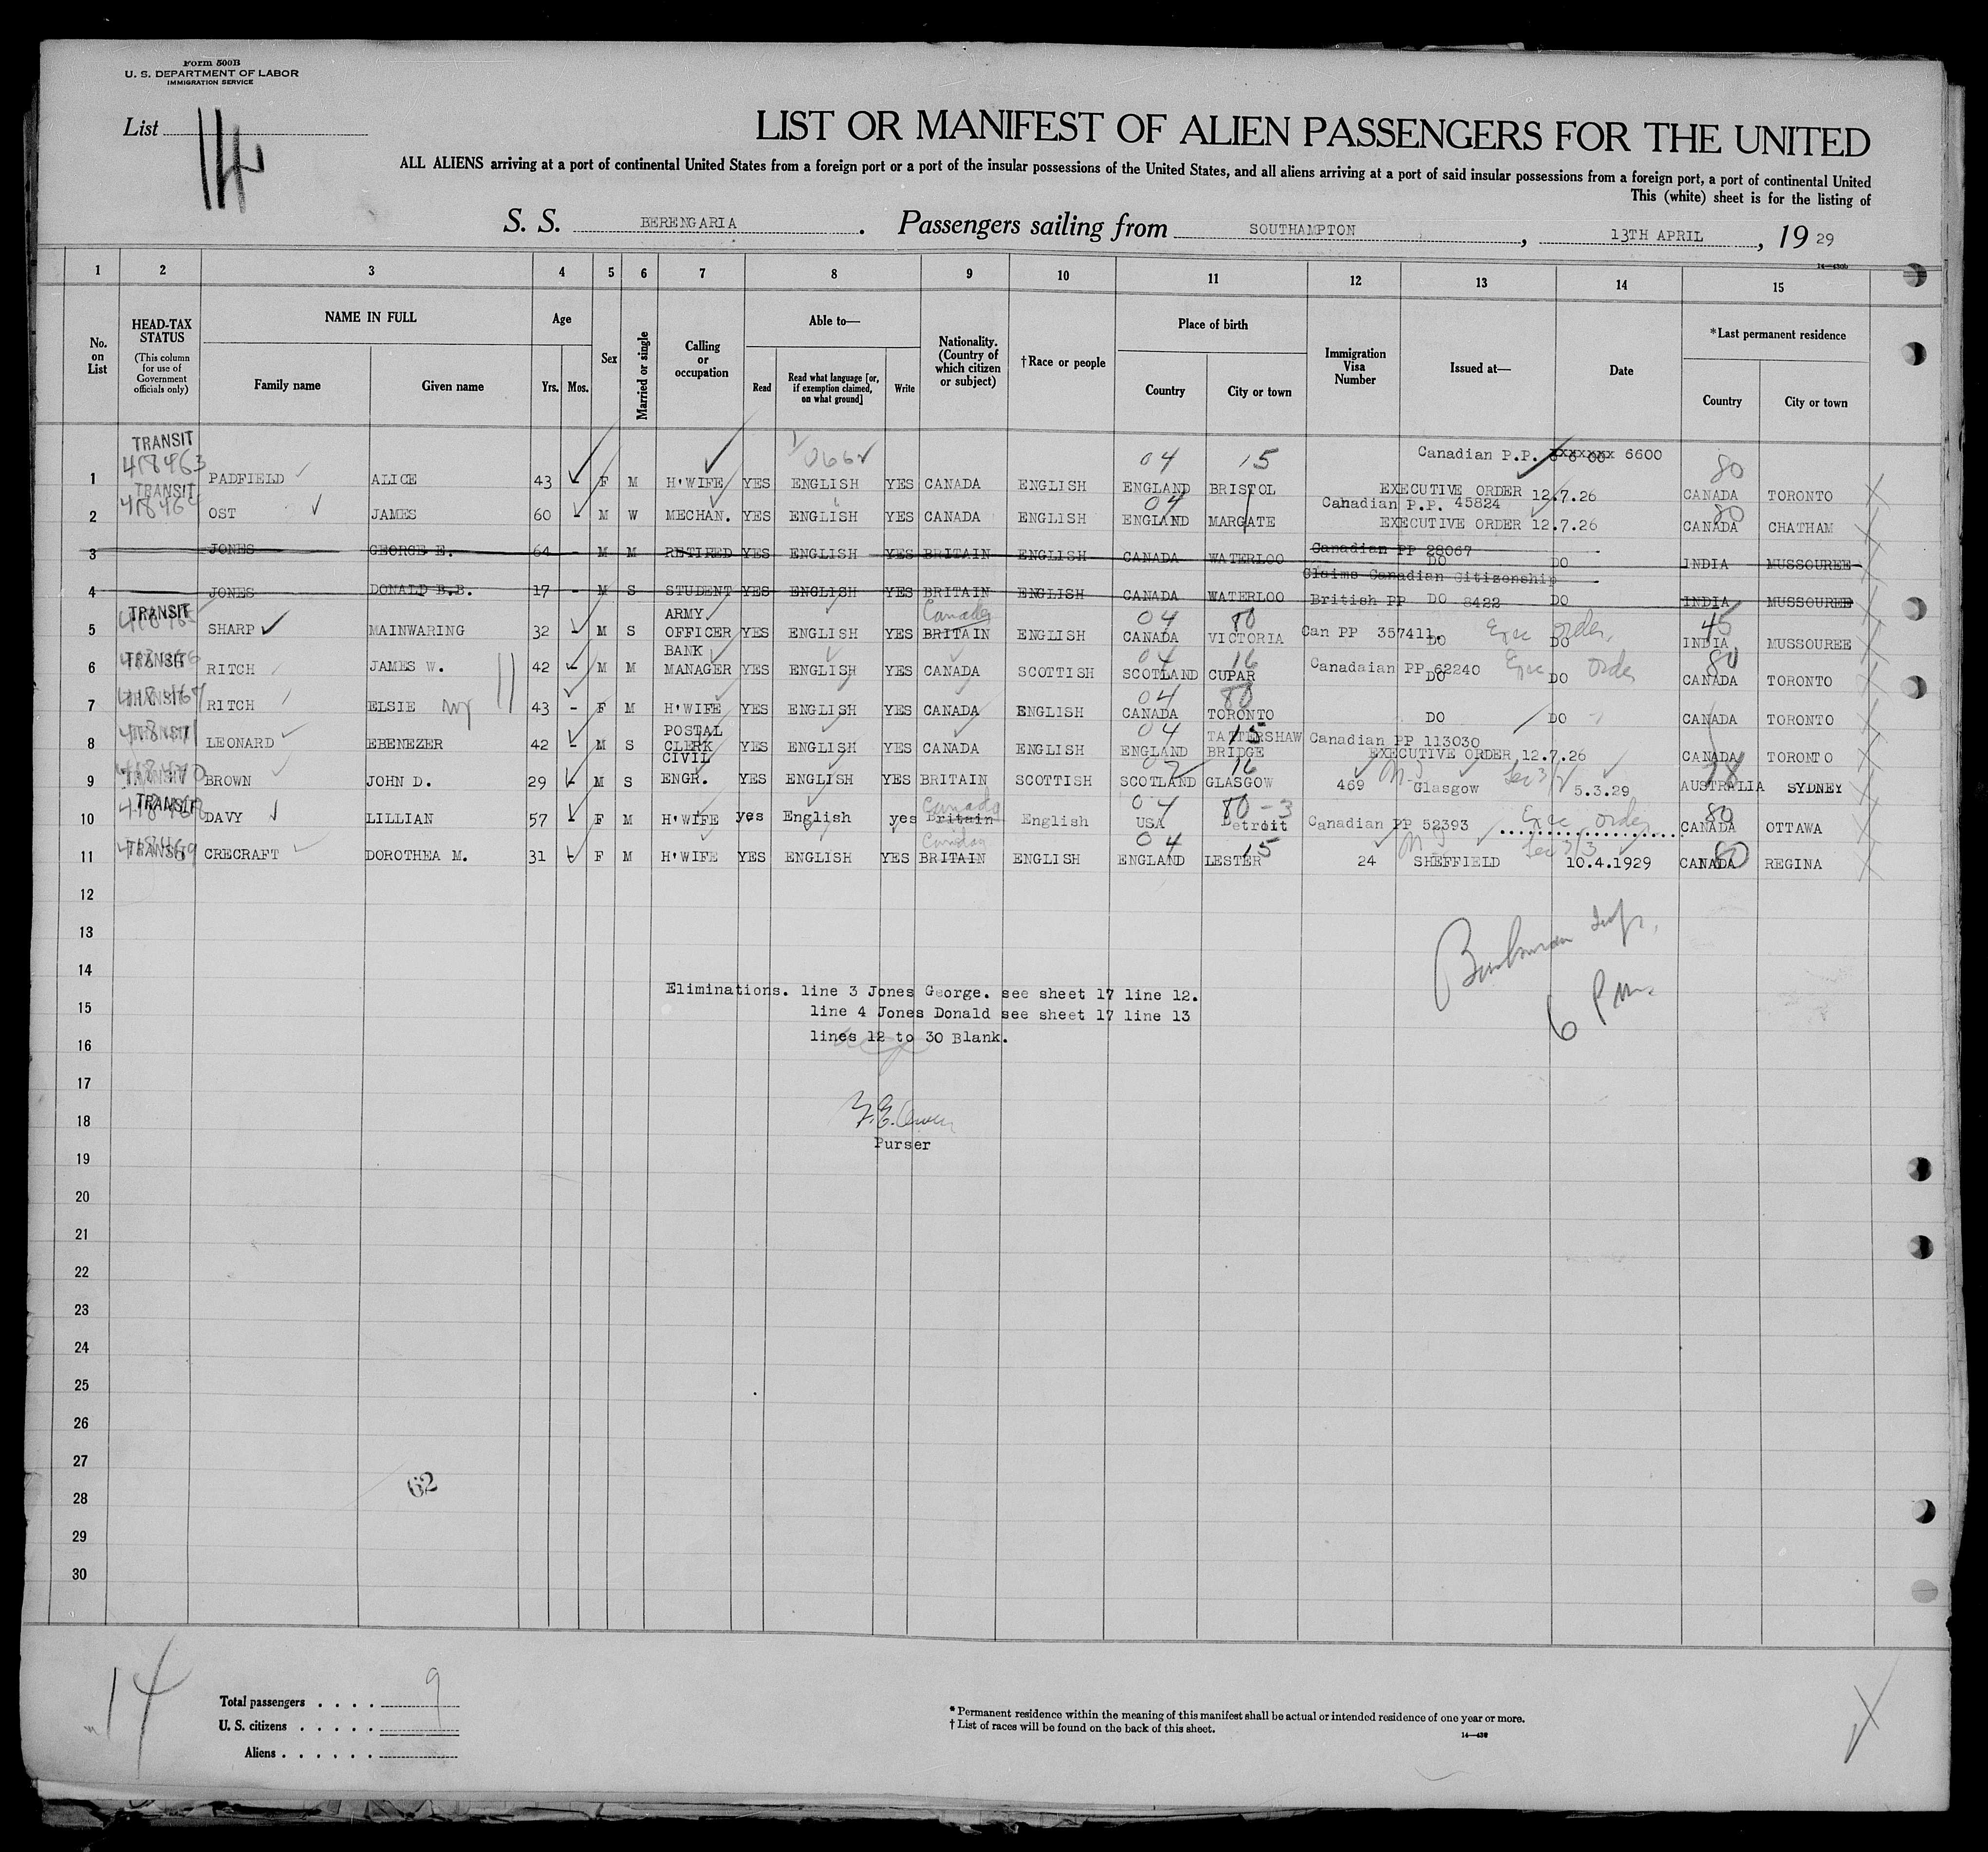 Form 500B
U. S. DEPARTMENT OF LABOR
IMMIGRATION SERVICE
List 14
LIST OR MANIFEST OF ALIEN PASSENGERS FOR THE UNITED
ALL ALIENS arriving at a port of continental United States from a foreign port or a port of the insular possessions of the United States, and all aliens arriving at a port of said insular possessions from a foreign port, a port of continental United
This (white) sheet is for the listing of
S. S. BERENGARIA. Passengers sailing from SOUTHAMPTON, 13TH APRIL, 19 29
1 2 3 4 5 6 7 8 9 10 11 12 13 14 15
No. on List
HEAD-TAX STATUS (This column for use of Government officials only)
NAME IN FULL Family name Given name
Age Yrs. Mos.
Sex
Married or single
Calling or occupation
Able to— Read Read what language [or, if exemption claimed, on what ground] Write
Nationality. (Country of which citizen or subject)
†Race or people
Place of birth Country City or town
Immigration Visa Number
Issued at—
Date
*Last permanent residence Country City or town
TRANSIT 04 15 Canadian P.P. 6600 80
1 418463 PADFIELD ALICE 43 F M H'WIFE YES ENGLISH YES CANADA ENGLISH ENGLAND BRISTOL EXECUTIVE ORDER 12.7.26 CANADA TORONTO
TRANSIT 04 Canadian P.P. 45824 80
2 418464 OST JAMES 60 - M W MECHAN. YES ENGLISH YES CANADA ENGLISH ENGLAND MARGATE EXECUTIVE ORDER 12.7.26 CANADA CHATHAM
Canadian PP 28067
3 JONES GEORGE E. 64 - M M RETIRED YES ENGLISH YES BRITAIN ENGLISH CANADA WATERLOO DO DO INDIA MUSSOUREE
Claims Canadian Citizenship
4 JONES DONALD B.B. 17 - M S STUDENT YES ENGLISH YES BRITAIN ENGLISH CANADA WATERLOO British PP DO 8422 DO INDIA MUSSOUREE
TRANSIT ARMY Canada 04 80 45
5 SHARP MAINWARING 32 - M S OFFICER YES ENGLISH YES BRITAIN ENGLISH CANADA VICTORIA Can PP 357411. DO Exec order. DO INDIA MUSSOUREE
TRANSIT BANK 04 16 80
6 RITCH JAMES W. 42 - M M MANAGER YES ENGLISH YES CANADA SCOTTISH SCOTLAND CUPAR Canadaian PP 62240 DO Exec order DO CANADA TORONTO
04 80
7 418467 RITCH ELSIE wf 43 - F M H'WIFE YES ENGLISH YES CANADA ENGLISH CANADA TORONTO DO DO CANADA TORONTO
POSTAL 04 15 TATTERSHAW
8 418471 LEONARD EBENEZER 42 - M S CLERK YES ENGLISH YES CANADA ENGLISH ENGLAND BRIDGE Canadian PP 113030 EXECUTIVE ORDER 12.7.26 CANADA TORONTO
CIVIL 16
9 418470 BROWN JOHN D. 29 - M S ENGR. YES ENGLISH YES BRITAIN SCOTTISH SCOTLAND GLASGOW 469 Glasgow 5.3.29 AUSTRALIA SYDNEY
TRANSIT Canada 04 80-3 Exec order 80
10 418468 DAVY LILLIAN 57 - F M H'WIFE yes English yes Britain English USA Detroit Canadian PP 52393 CANADA OTTAWA
Canada 04 15 80
11 418469 CRECRAFT DOROTHEA M. 31 - F M H'WIFE YES ENGLISH YES BRITAIN ENGLISH ENGLAND LESTER 24 SHEFFIELD 10.4.1929 CANADA REGINA
12
13
14
Eliminations. line 3 Jones George. see sheet 17 line 12.
15
line 4 Jones Donald see sheet 17 line 13
6 Pm.
16
lines 12 to 30 Blank.
17
18
Purser
19
20
21
22
23
24
25
26
27
62
28
29
30
14
Total passengers . . . . 9
U. S. citizens . . . . .
Aliens . . . . . .
* Permanent residence within the meaning of this manifest shall be actual or intended residence of one year or more.
† List of races will be found on the back of this sheet.
14—430